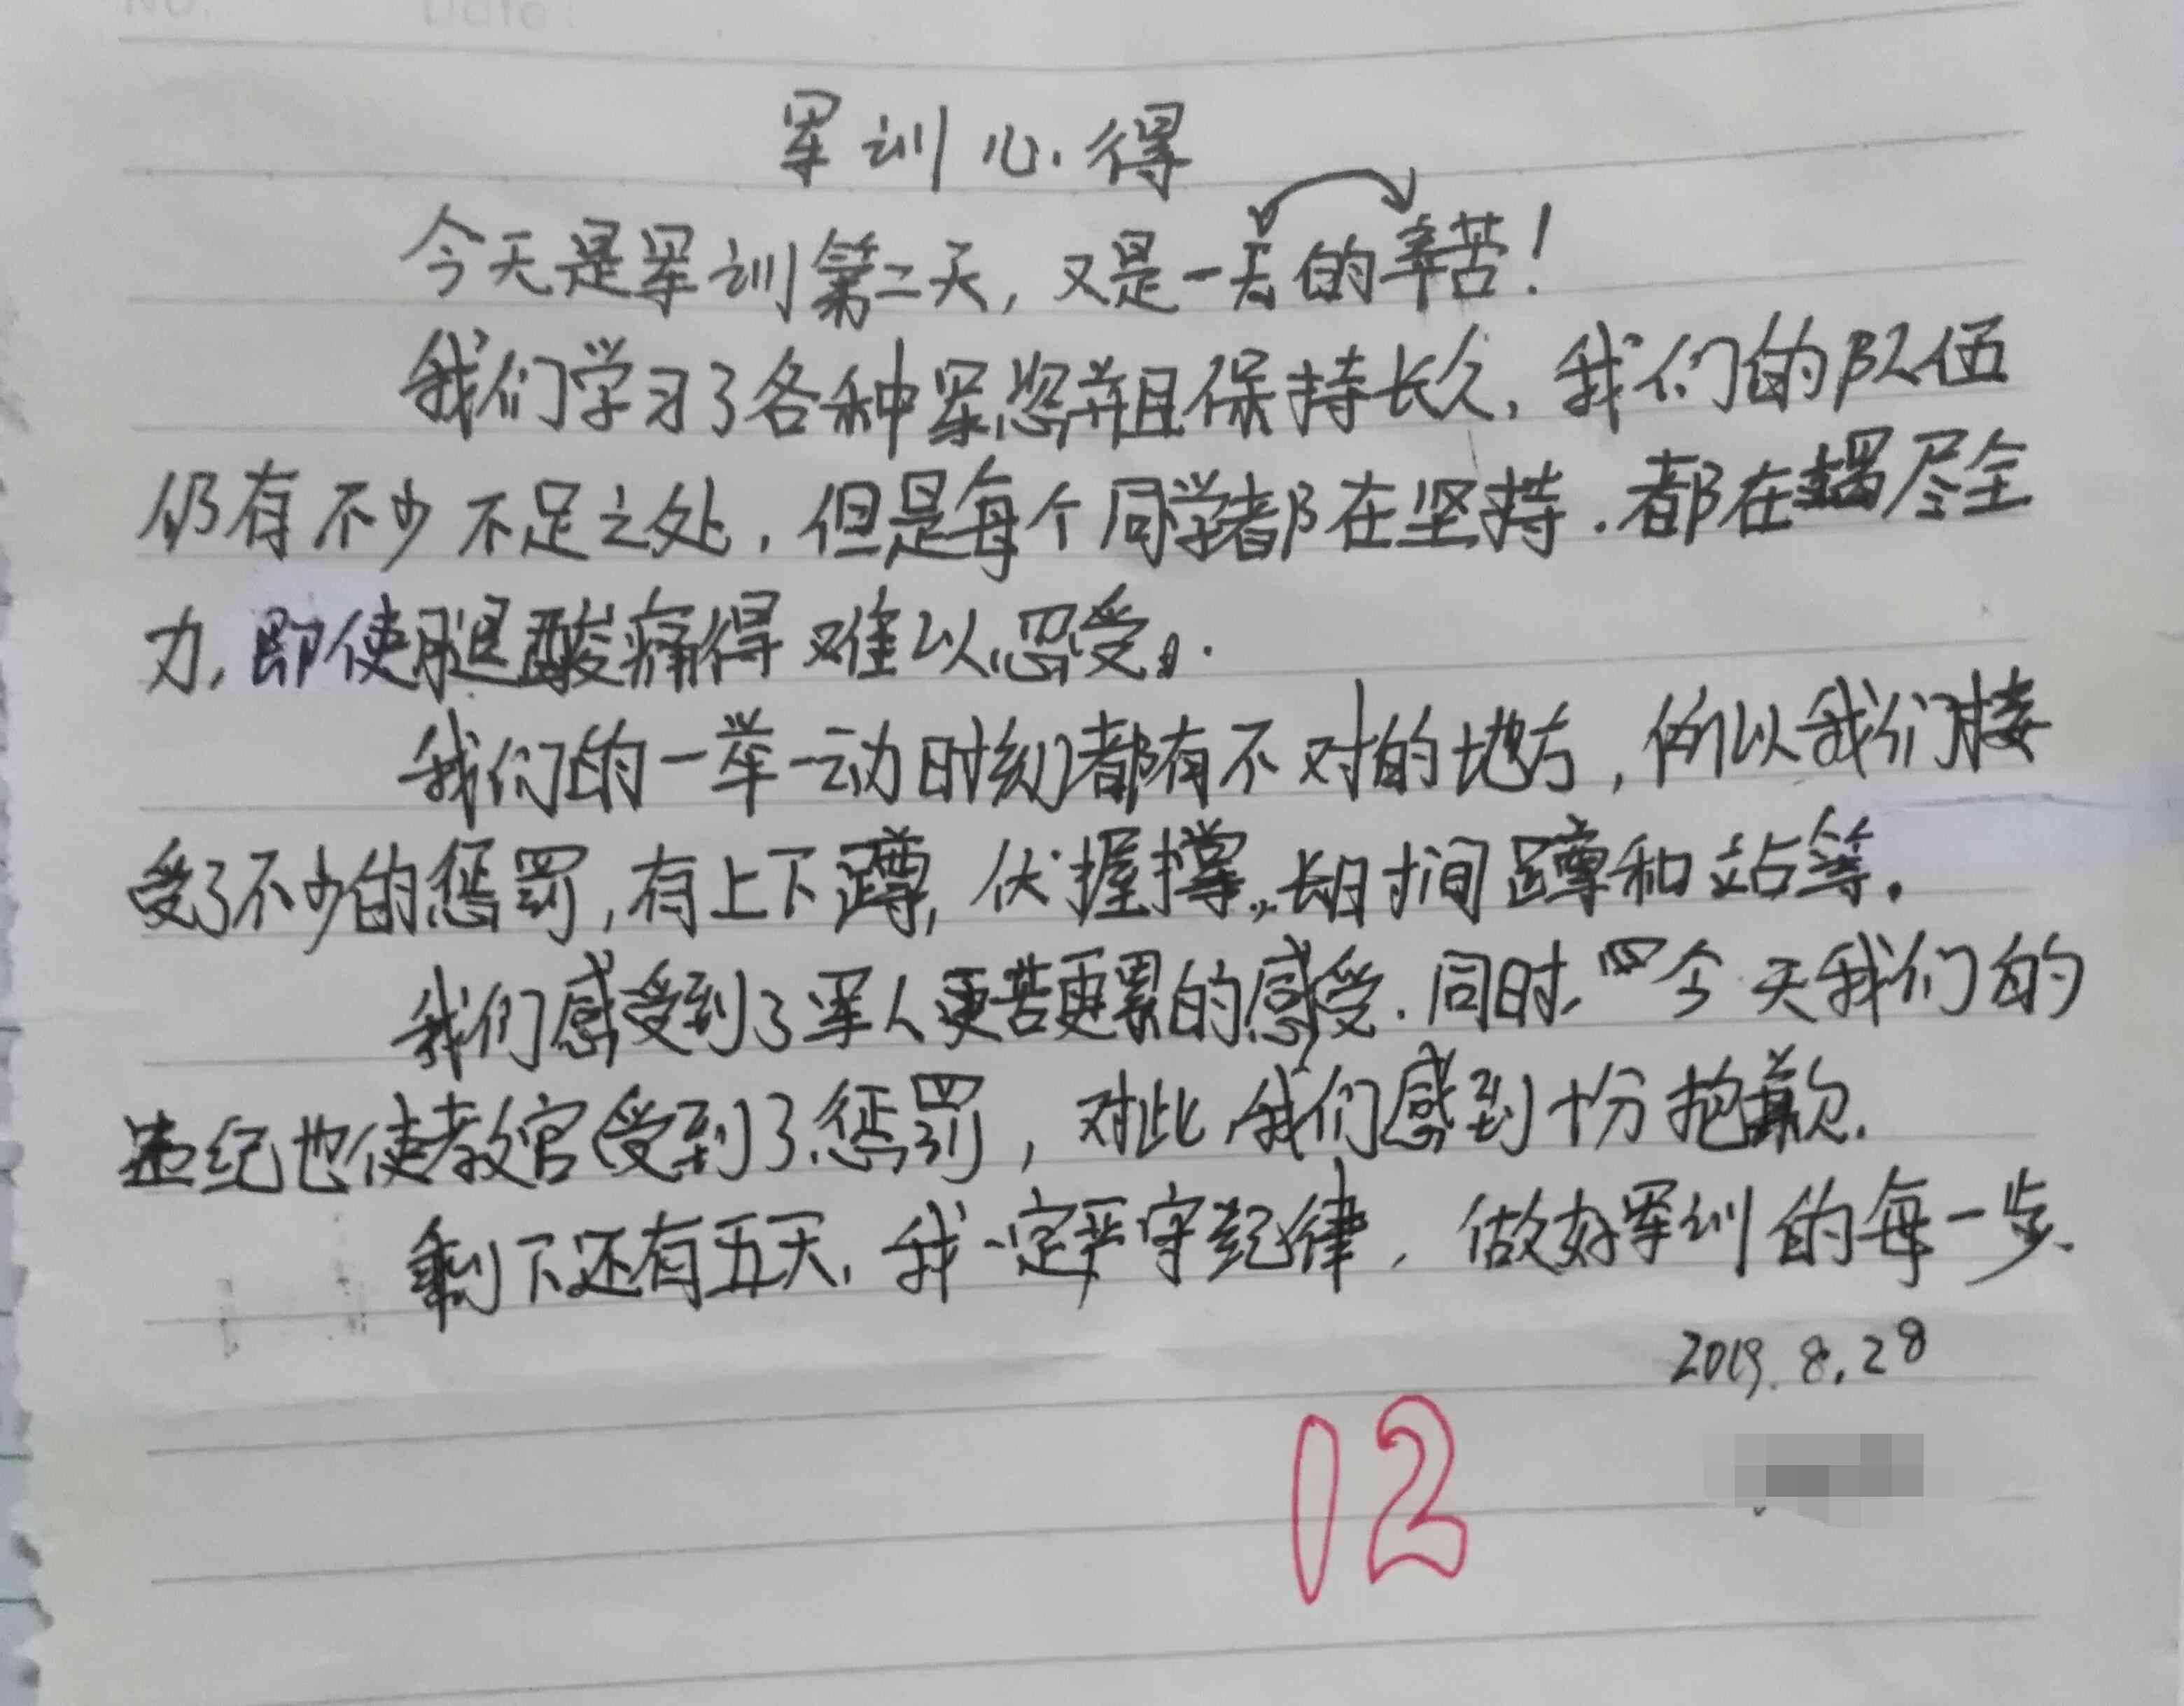 No. Date:
军训心得
今天是军训第二天，又是一天的辛苦！
我们学习了各种军姿并且保持长久，我们的队伍
仍有不少不足之处，但是每个同学都在坚持．都在竭尽全
力，即使腿酸痛得难以忍受．
我们的一举一动时刻都有不对的地方，所以我们接
受了不少的惩罚，有上下蹲，伏握撑，长时间蹲和站等．
我们感受到了军人更苦更累的感受．同时，今天我们的
违纪也使教官受到了惩罚，对此我们感到十分抱歉．
剩下还有五天，我一定严守纪律，做好军训的每一步．
2019.8.28
12